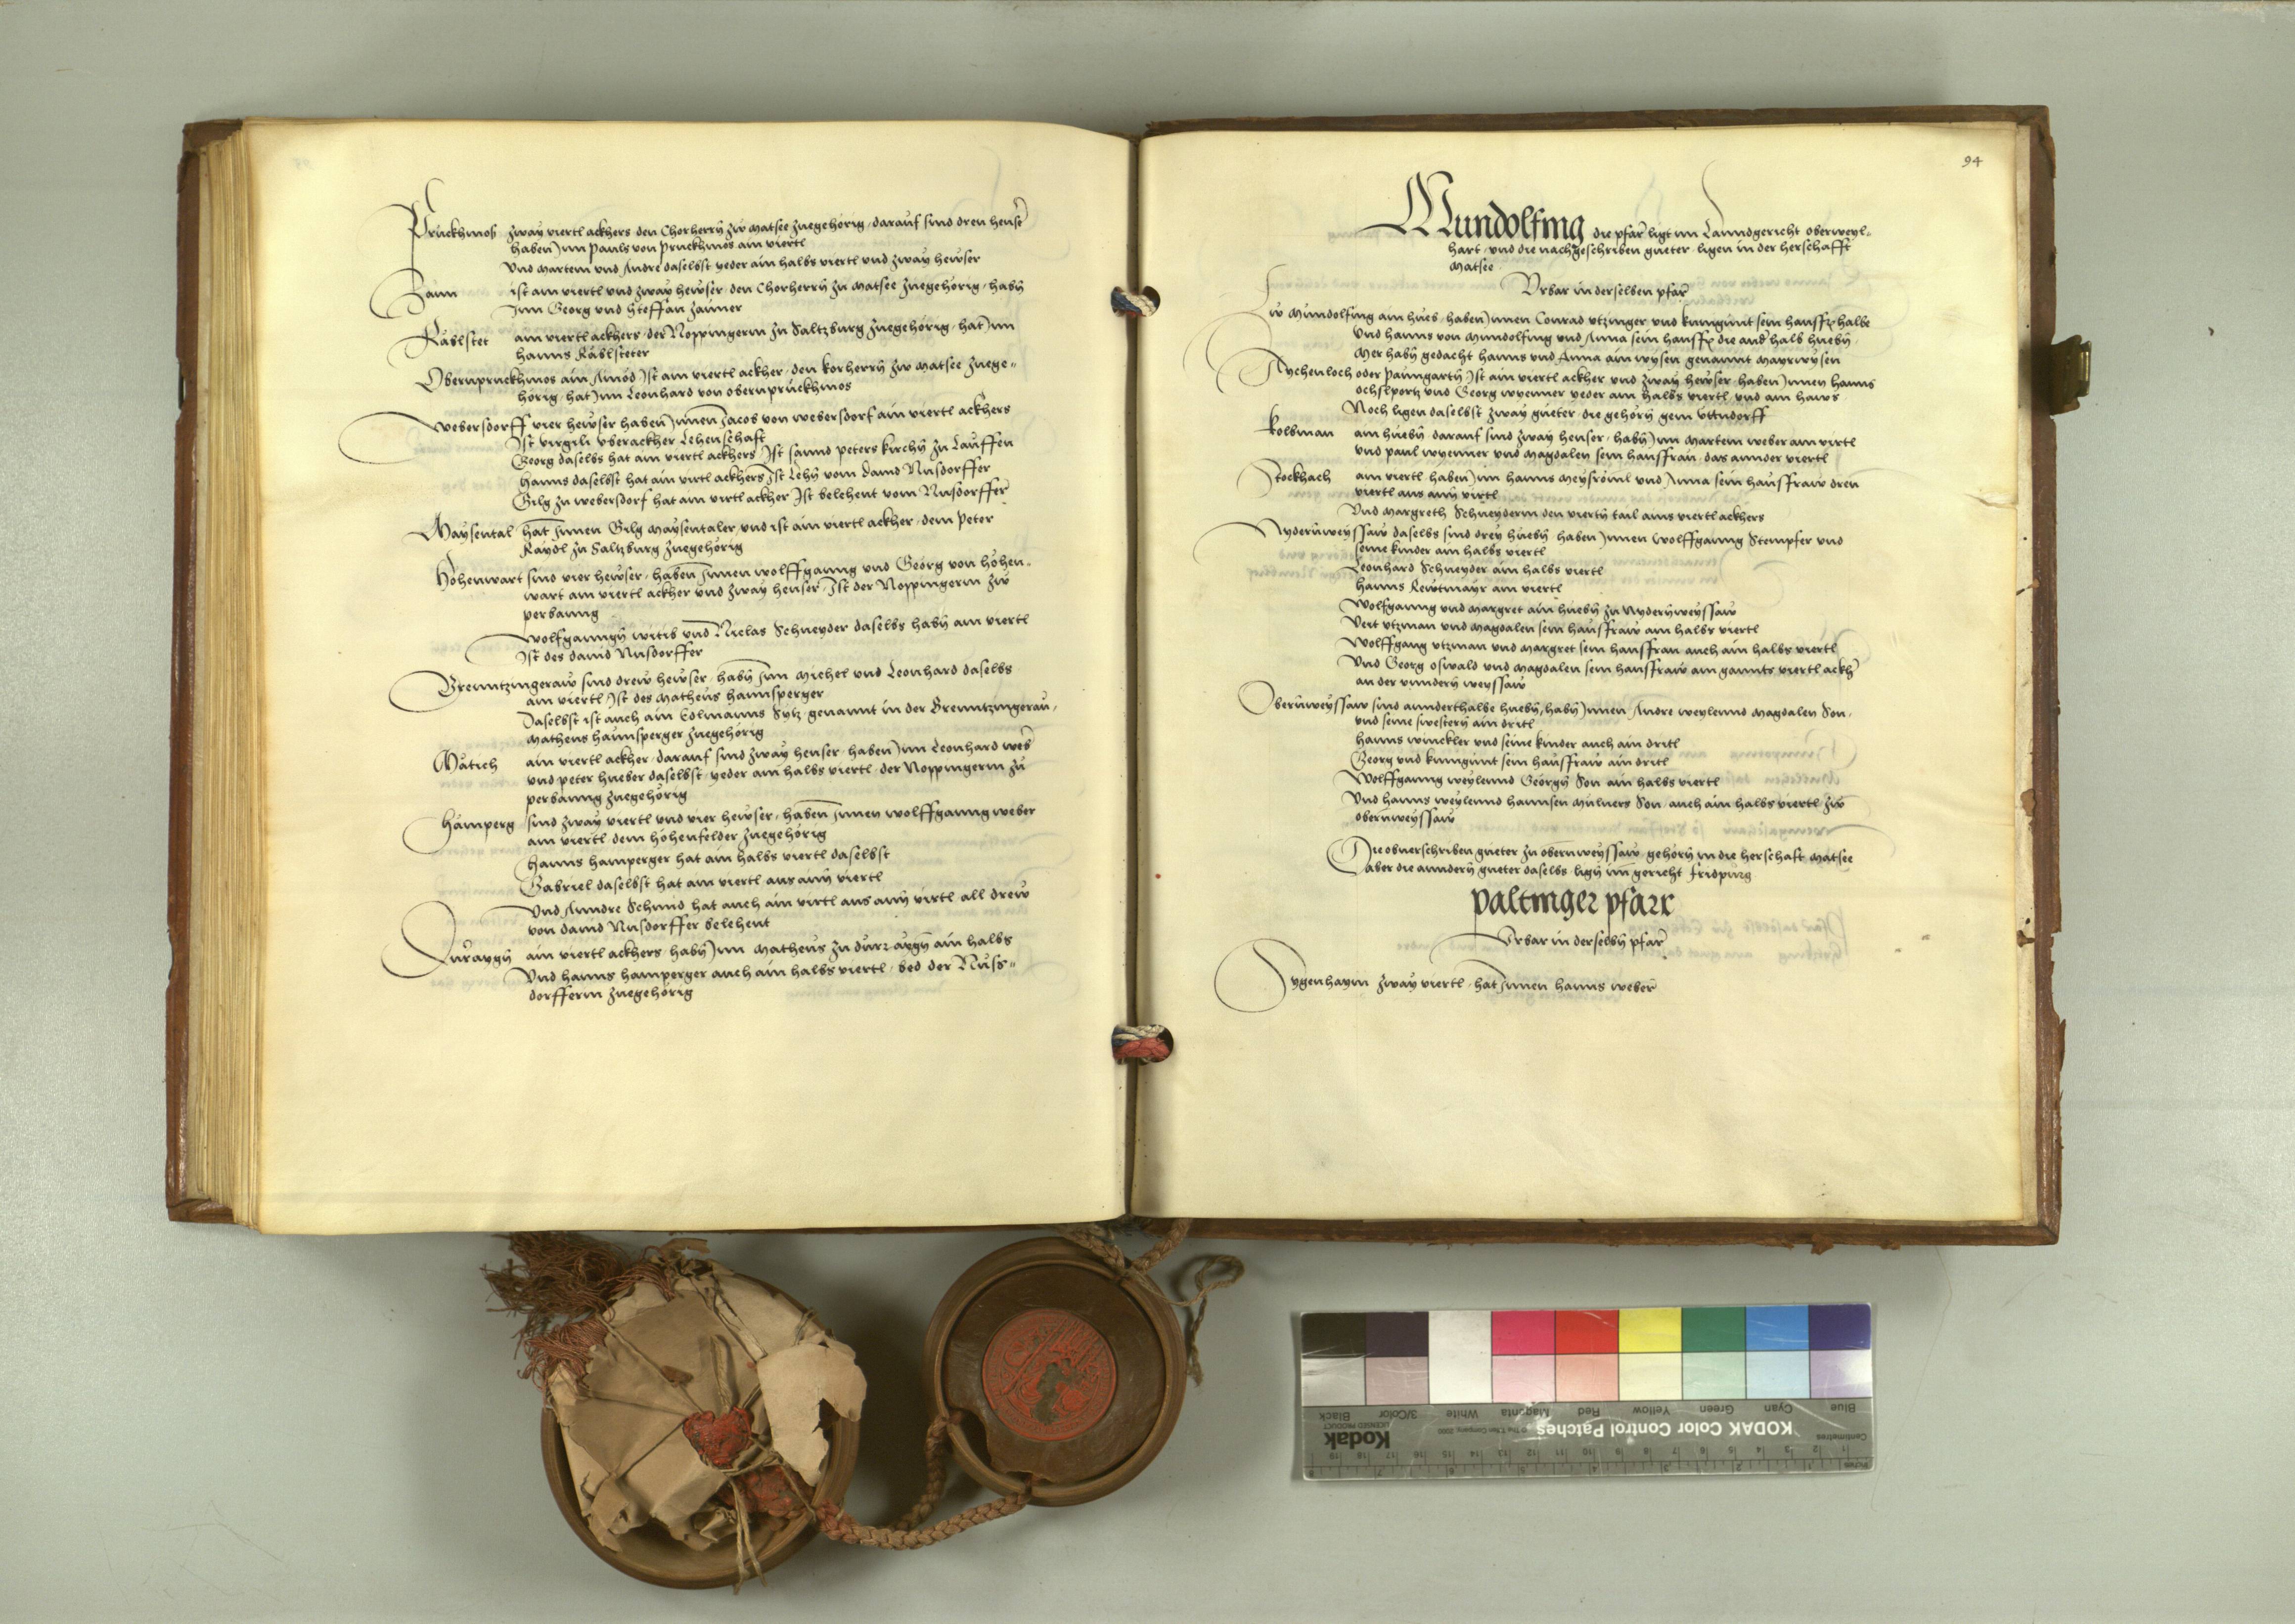 Prückhmos zway viertl ackhers den Chorherrn zw Matsee zuegehörig, darauf sind dreu heuser
haben Jnn Pauls von Prückhmos ain viertl
Vnd Martein vnd Andre daselbst yeder ain halbs viertl vnd zway hewser
Zaun ist ain viertl vnd zway hewser den Chorherrn zu Matsee zuegehörig, habn
Jnn Georg vnd Steffan zauner
Räblstet ain viertl ackhers der Noppingerin zu Saltzburg zuegehörig, hat Jnn
hanns Räblsteter
Obernprückhmos ain Ainöd Ist ain viertl ackher, den korherrn zw Matsee zuege=
hörig, hat Jnn Leonhard von obernprückhmos
Webersdorff vier hewser haben Jnnen Jacob von webersdorf ain viertl ackhers
Ist virgili vberackher Lehenschaft
Georg daselbs hat ain viertl ackhers Ist sannd peters kirchn zu Lauffen
hanns daselbst hat ain virtl ackhers Ist Lehn vom Damd Nusdorffer
Gilg zu webersdorf hat ain virtl ackher Ist belehent vom Nusdorffer
Maysental hat Jnnen Gilg Maysentaler vnd ist ain viertl ackher, dem Peter
Kaydl zu Saltzburg zuegehörig
Hohenwart sind vier hewser, haben Jnnen wolffganng vnd Georg von hohen=
wart ain viertl ackher vnd zway heuser, Ist der Noppingerin zw
perbanng
Wolfganngn witib vnd Niclas Schneyder daselbs habn ain viertl
Ist des damd Nusdorffer
Grenntzingeraw sind drew hewser, habn Jnn Michel vnd Leonhard daselbs
ain viertl, Ist des Matheus hannsperger
Daselbst ist auch ain Edlmanns Sytz genannt in der Grenntzingerau,
Matheus haunsperger zuegehörig
Mätich ain viertl ackher, darauf sind zway heuser, haben Jnn Leonhard web
vnd peter hueber daselbst, yeder ain halbs viertl, der Noppingerin zu
perbanng zuegehörig
Hamperg sind zway viertl vnd vier hewser, haben Jnnen wolffganng weber
ain viertl dem hohenfelder zuegehörig
Hanns hamperger hat ain halbs viertl daselbst
Gabriel daselbst hat ain viertl aus aim viertl
Vnd Anndre Schmid hat auch ain virtl aus aim virtl all drew
von damd Nusdorffer belehent
Duraygn ain viertl ackhers, habn Jnn Matheus zu dürr aygn ain halbs
Vnd hanns hamperger auch ain halbs viertl, bed der Nuss=
dorfferin zuegehörig
94
Mundolfing die pfarr ligt im Lanndgericht oberweyl=
hart, vnd die nachgeschriben gueter, ligen in der herschafft
Matsee
Vrbar in derselben pfarr
Zw Mundolfing ain hueb, haben Jnnen Conrad vtzinger vnd kungunt sein hausfr halbe
Vnd hanns von Mundolfing vnd Anna sein hausfr die ander halb huebn
Mer habn gedacht hanns vnd Anna ain wysen genannt Mayrwysen
Aychenloch oder Paumgartn Ist ain viertl ackher vnd zway hewser, haben Jnnen hanns
ochslportz vnd Georg wyenner yeder ain halbs viertl vnd ain haws
Noch ligen daselbst zway gueter, die gehörn gein vttndorff
Kolbman ain huebn darauf sind zway heuser, habn Jnn Martein weber ain virtl
vnd paul wyenner vnd Magdalen sein hausfrau, das annder viertl
Stockhach ain viertl haben Jnn hanns Meysröml vnd Anna sein hausfraw dreu
viertl aus aim virtl
Vnd Margreth Schneyderin den viertn tail ains viertl ackhers
Nydernweyssaw daselbs sind drey huebn haben Jnnen Wolffganng Stempfer vnd
seine kinder ain halbs viertl
Leonhard Schneyder ain halbs viertl
hanns Rewtmayr ain viertl
Wolfganng vnd Margret ain huebn zu Nydernweyssaw
Veit vtzman vnd Magdalen sein hausfraw ain halbs viertl
Wolffgang vtzman vnd Margret sein hausfrau auch ain halbs viertl
Vnd Georg oswald vnd Magdalen sein hausfraw ain gannts viertl ackh
an der vnndern weyssaw
Obernweyssaw sind annderthalbe huebn, habn Jnnen Andre weylennd Magdalen Son,
vnd seine swestern ain dritl
hanns winckler vnd seine kinder auch ain dritl
Georg vnd kungunt sein hausfraw ain dritl
Wolffganng weylennd Georgn Son ain halbs viertl
Vnd hanns weylennd hannsen Mulners Son, auch ain halbs viertl zw
obernweyssaw
Die obuerschriben gueter zu obernweyssaw, gehörn in die herschaft Matsee
aber die anndern gueter daselbs, lign im gericht Fridpurg
Paltinger pfarr
Vrbar in derselbn pfarr
Sygenhaym zway viertl, hat Jnnen hanns weber
KODAK Color Control Patches
Kodak
LICENSED PRODUCT
Black 3/Color White Magenta Red Yellow Green Cyan Blue
Centimetres
Inches